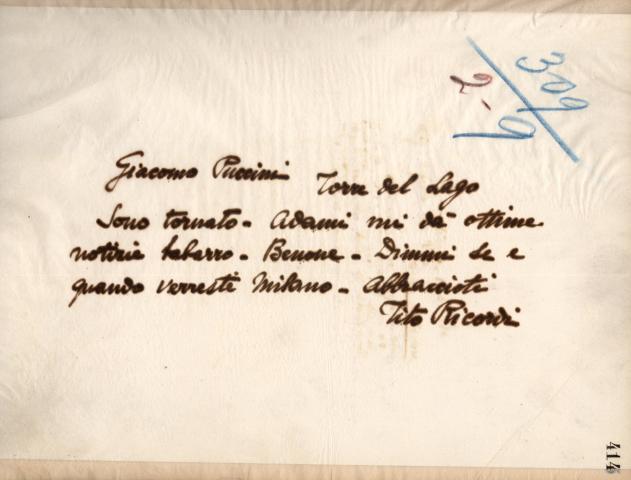 309
2-9
Giacomo Puccini Torre del Lago
Sono tornato - Adami mi dà ottime
notizie tabarro - Benone - Dimmi se e
quando verresti Milano - Abbraccioti
Tito Ricordi
414